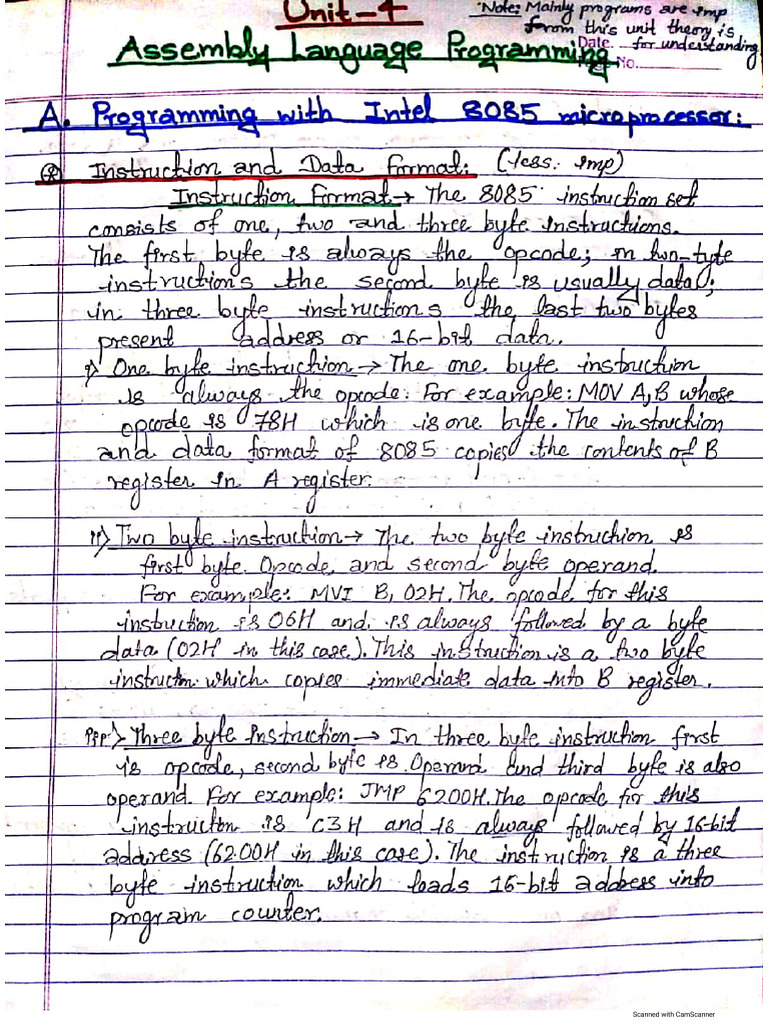 Unit-4
Note: Mainly programs are imp
from this unit theory is
Date. for understanding
No.
Assembly Language Programming
A. Programming with Intel 8085 microprocessor:
Instruction and Data Format: (less. imp)
Instruction Format → The 8085 instruction set
consists of one, two and three byte instructions.
The first byte is always the opcode; in two-tyte
instruction's the second byte is usually data;
in three byte instructions the last two bytes
present address or 16-bit data.
i) One byte instruction → The one byte instruction
is always the opcode. For example: MOV A,B whose
opcode is 78H which is one byte. The instruction
and data format of 8085 copies the contents of B
register in A register.
ii) Two byte instruction → The two byte instruction is
first byte Opcode and second byte operand.
For example: MVI B, 02H. The opcode for this
instruction is 06H and is always followed by a byte
data (02H in this case). This instruction is a two byte
instructn. which copies immediate data into B register.
iii) Three byte Instruction → In three byte instruction first
is opcode, second byte is Operand and third byte is also
operand. For example: JMP 6200H. The opcode for this
instructon is C3H and is always followed by 16-bit
address (6200H in this case). The instruction is a three
byte instruction which loads 16-bit address into
program counter.
Scanned with CamScanner